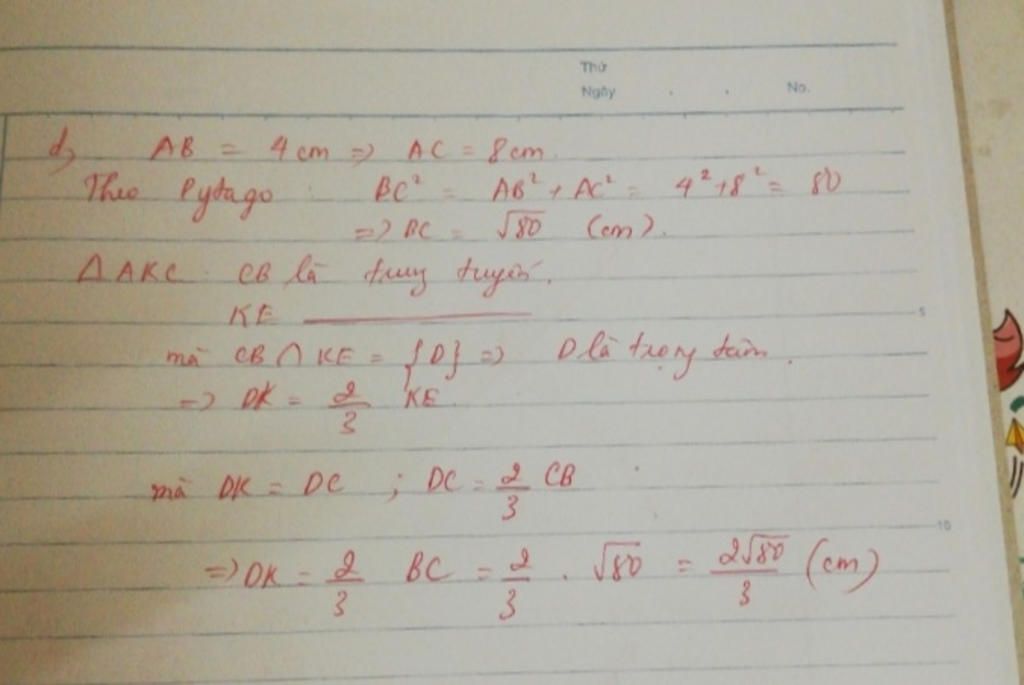 Thứ
Ngày . . No.
d, AB = 4 cm => AC = 8 cm
Theo Pytago : BC² = AB² + AC² = 4² + 8² = 80
=> BC = √80 (cm).
Δ AKC CB là trung tuyến.
KE
mà CB ∩ KE = {D} => D là trọng tâm.
=> DK = 2/3 KE
5
mà DK = DC ; DC = 2/3 CB
10
=> DK = 2/3 BC = 2/3 . √80 = 2√80/3 (cm)